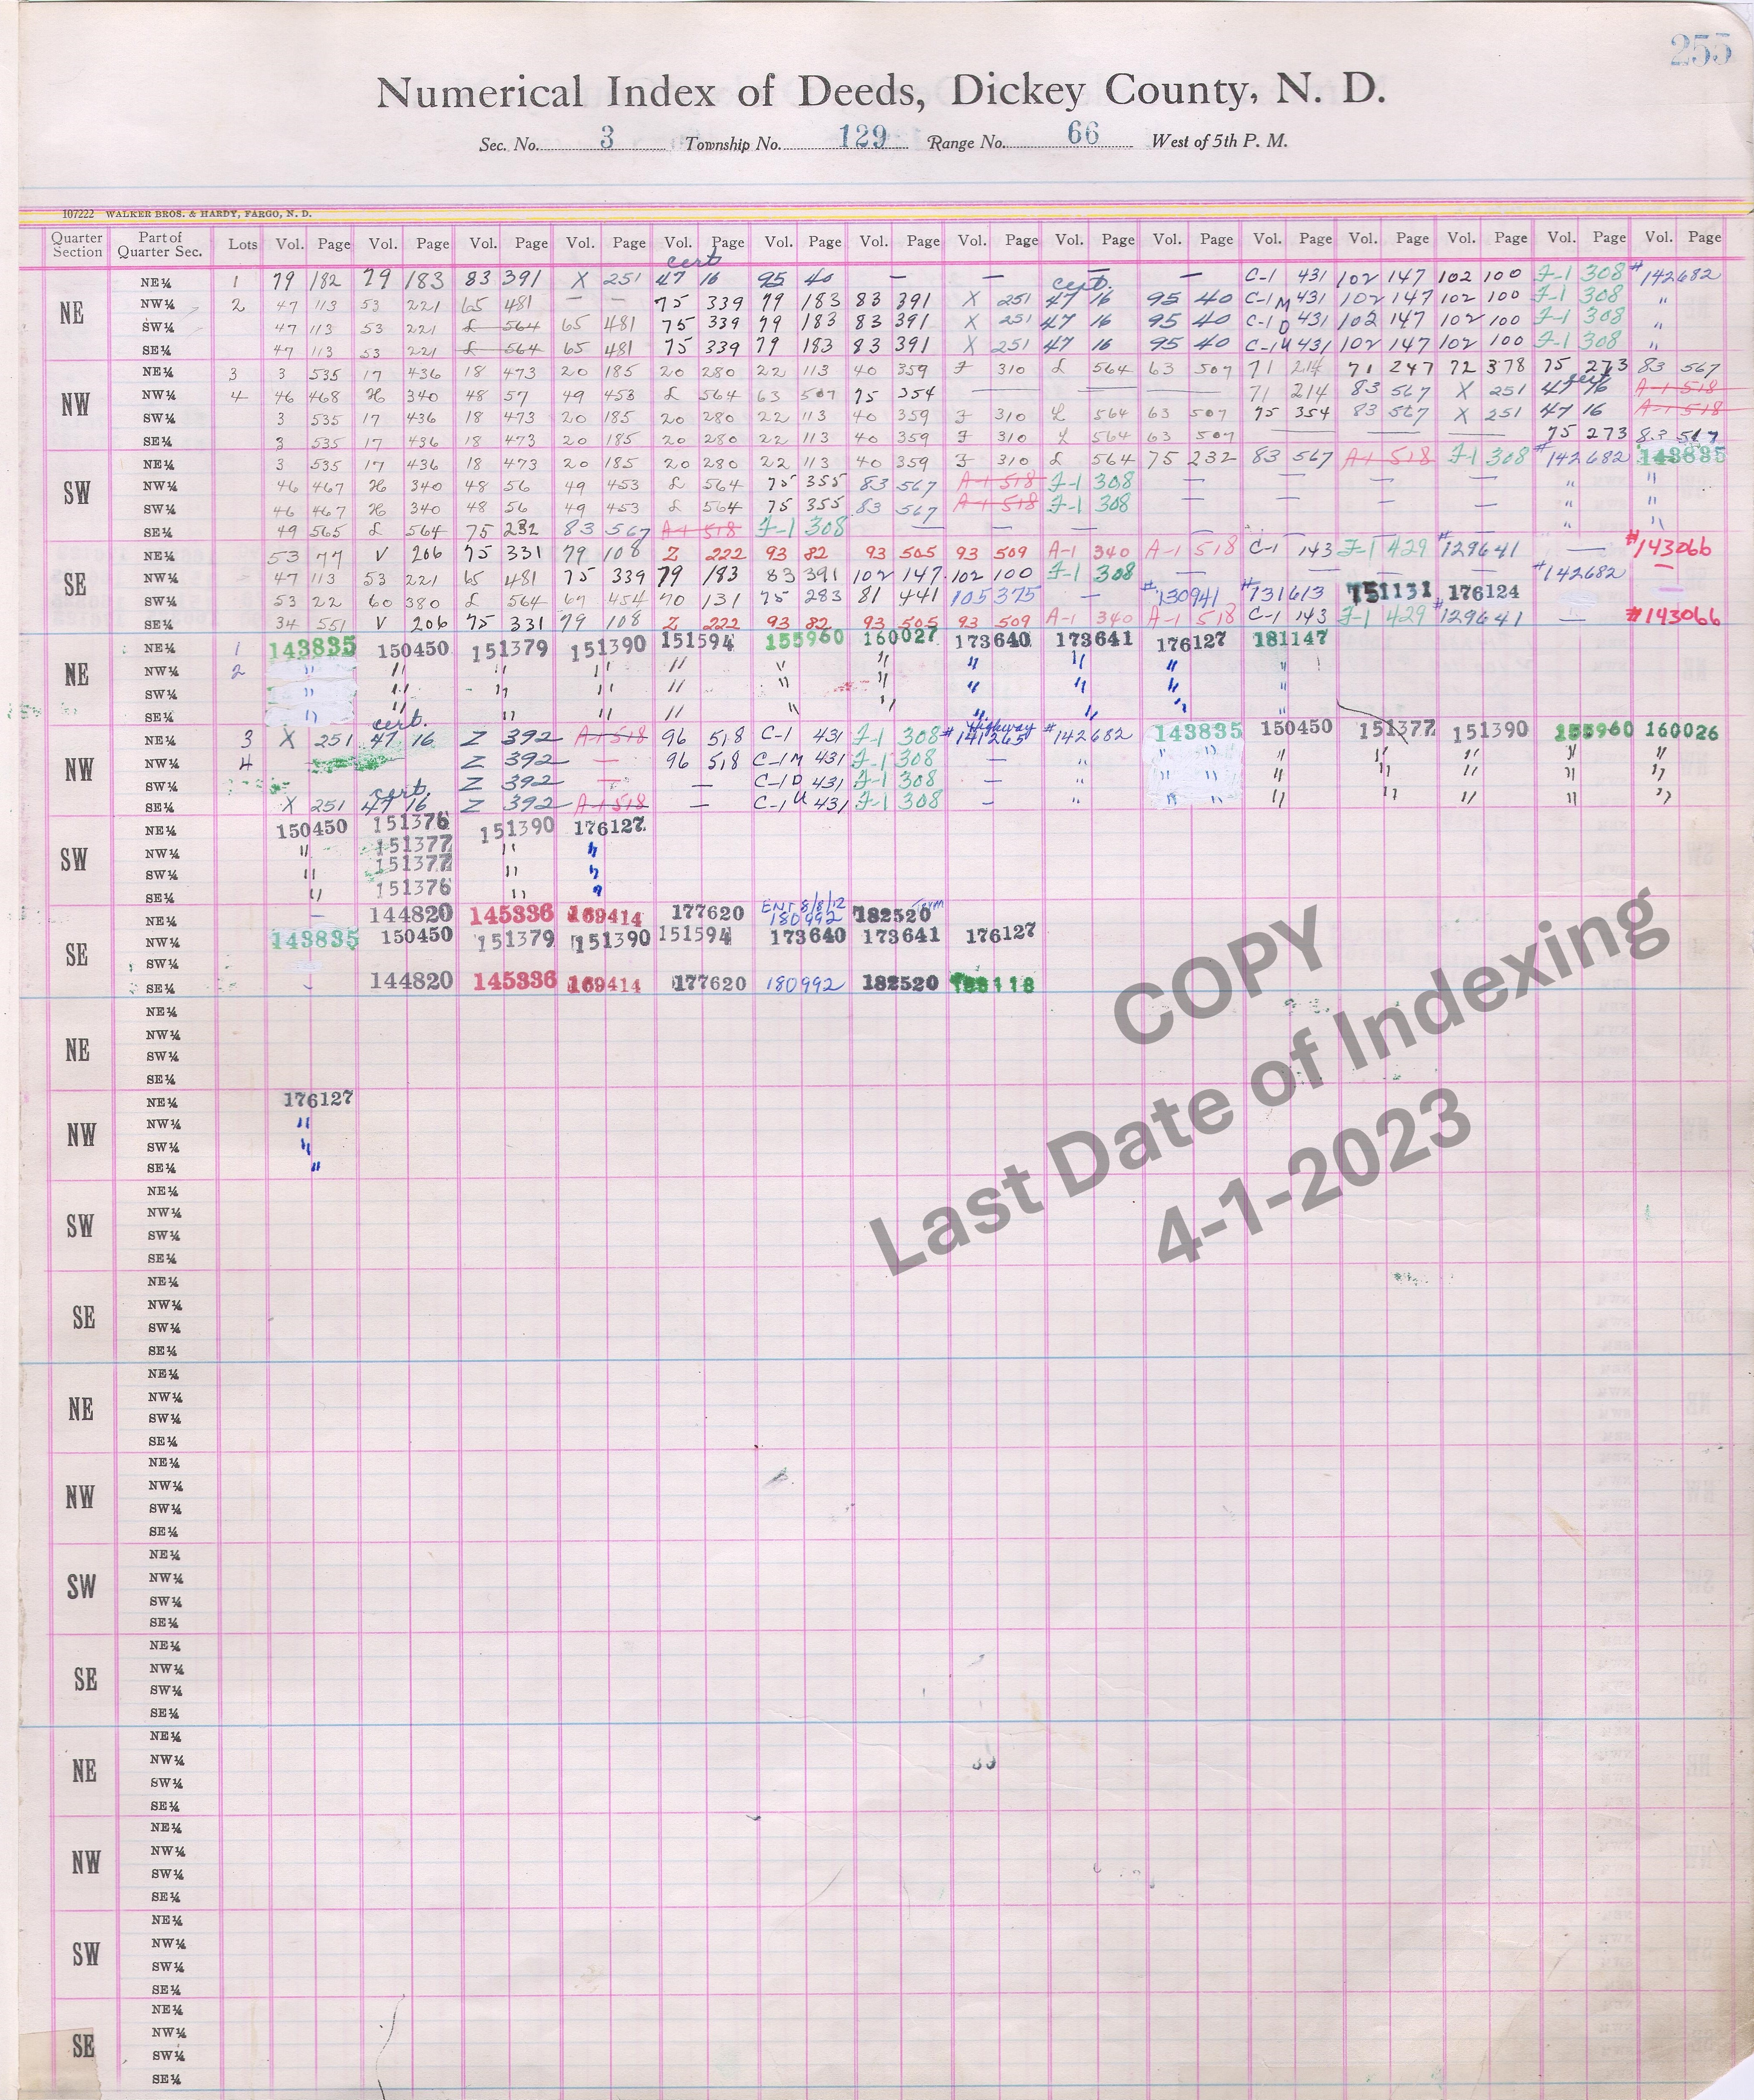 255
Numerical Index of Deeds, Dickey County, N. D.
Sec. No. 3 Township No. 129 Range No. 66 West of 5th P. M.
107222 WALKER BROS. & HARDY, FARGO, N. D.
Quarter Section Part of Quarter Sec. Lots Vol. Page Vol. Page Vol. Page Vol. Page Vol. Page Vol. Page Vol. Page Vol. Page Vol. Page Vol. Page Vol. Page Vol. Page Vol. Page Vol. Page Vol. Page
cert cert.
NE NE¼ 1 79 182 79 183 83 391 X 251 47 16 95 40 — — — — C-1 431 102 147 102 100 J-1 308 #142682
NW¼ 2 47 113 53 221 65 481 — — 75 339 79 183 83 391 X 251 47 16 95 40 C-1 M 431 102 147 102 100 J-1 308 "
SW¼ 47 113 53 221 £ 564 65 481 75 339 79 183 83 391 X 251 47 16 95 40 C-1 D 431 102 147 102 100 J-1 308 "
SE¼ 47 113 53 221 £ 564 65 481 75 339 79 183 83 391 X 251 47 16 95 40 C-1 U 431 102 147 102 100 J-1 308 "
NW NE¼ 3 3 535 17 436 18 473 20 185 20 280 22 113 40 359 J 310 £ 564 63 507 71 214 71 247 72 378 75 273 83 567
NW¼ 4 46 468 H 340 48 57 49 453 £ 564 63 507 75 354 — — — 71 214 83 567 X 251 cert 47 16 A-1 518
SW¼ 3 535 17 436 18 473 20 185 20 280 22 113 40 359 J 310 £ 564 63 507 75 354 83 567 X 251 47 16 A-1 518
SE¼ 3 535 17 436 18 473 20 185 20 280 22 113 40 359 J 310 £ 564 63 507 — — — 75 273 83 567
SW NE¼ 3 535 17 436 18 473 20 185 20 280 22 113 40 359 J 310 £ 564 75 232 83 567 A-1 518 J-1 308 #142682 143835
NW¼ 46 467 H 340 48 56 49 453 £ 564 75 355 83 567 A-1 518 J-1 308 — — — — " "
SW¼ 46 467 H 340 48 56 49 453 £ 564 75 355 83 567 A-1 518 J-1 308 — — — — " "
SE¼ 49 565 £ 564 75 232 83 567 A-1 518 J-1 308 — — — — — — — " "
SE NE¼ 53 77 V 206 75 331 79 108 Z 222 93 82 93 505 93 509 A-1 340 A-1 518 C-1 143 J-1 429 #129641 — #143066
NW¼ 47 113 53 221 65 481 75 339 79 183 83 391 102 147 102 100 J-1 308 — — — — #142682 —
SW¼ 53 22 60 380 £ 564 67 454 70 131 75 283 81 441 105 375 — #130941 #131613 151131 176124
SE¼ 34 551 V 206 75 331 79 108 Z 222 93 82 93 505 93 509 A-1 340 A-1 518 C-1 143 J-1 429 #129641 — #143066
NE NE¼ 1 143835 150450 151379 151390 151594 155960 160027 173640 173641 176127 181147
NW¼ 2 " " " " " " " " " " "
SW¼ " " " " " " " " " " "
SE¼ " " " " " " " " " " "
cert. Highway
NW NE¼ 3 X 251 47 16 Z 392 A-1 518 96 518 C-1 431 J-1 308 #141265 #142682 143835 150450 151377 151390 155960 160026
NW¼ 4 Z 392 — 96 518 C-1 M 431 J-1 308 — " " " " " " " "
SW¼ Z 392 — — C-1 D 431 J-1 308 — " " " " " "
cert.
SE¼ X 251 47 16 Z 392 A-1 518 — C-1 U 431 J-1 308 — " " " " " " " "
SW NE¼ 150450 151376 151390 176127
NW¼ " 151377 " "
SW¼ " 151377 " "
SE¼ " 151376 " "
SE NE¼ — 144820 145336 169414 177620 ENT 8/8/12 180992 182520
NW¼ 143835 150450 151379 151390 151594 173640 173641 176127
SW¼
SE¼ - 144820 145336 169414 177620 180992 182520
NE NE¼
NW¼
SW¼
SE¼
NW NE¼ 176127
NW¼ "
SW¼ "
SE¼ "
SW NE¼
NW¼
SW¼
SE¼
SE NE¼
NW¼
SW¼
SE¼
NE NE¼
NW¼
SW¼
SE¼
NW NE¼
NW¼
SW¼
SE¼
SW NE¼
NW¼
SW¼
SE¼
SE NE¼
NW¼
SW¼
SE¼
NE NE¼
NW¼
SW¼
SE¼
NW NE¼
NW¼
SW¼
SE¼
SW NE¼
NW¼
SW¼
SE¼
SE NE¼
NW¼
SW¼
SE¼
COPY
Last Date of Indexing
4-1-2023